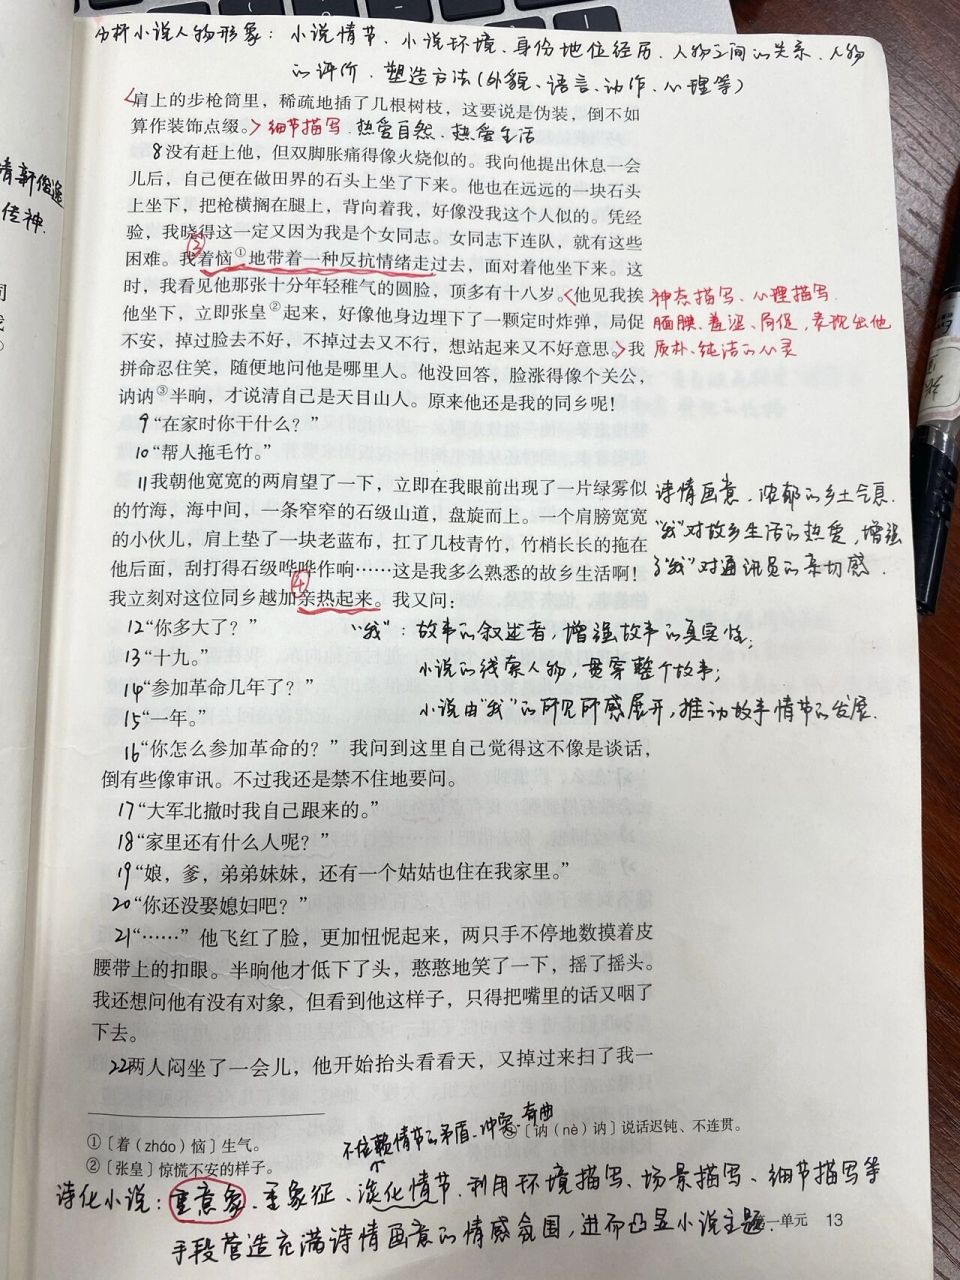 分析小说人物形象：小说情节、小说环境、身份地位经历、人物之间的关系、人物
的评价、塑造方法(外貌、语言、动作、心理等)
肩上的步枪筒里，稀疏地插了几根树枝，这要说是伪装，倒不如
算作装饰点缀。细节描写.热爱自然、热爱生活
清新俊逸
传神.
8没有赶上他，但双脚胀痛得像火烧似的。我向他提出休息一会
儿后，自己便在做田界的石头上坐了下来。他也在远远的一块石头
上坐下，把枪横搁在腿上，背向着我，好像没我这个人似的。凭经
验，我晓得这一定又因为我是个女同志。女同志下连队，就有这些
③
困难。我着恼①地带着一种反抗情绪走过去，面对着他坐下来。这
时，我看见他那张十分年轻稚气的圆脸，顶多有十八岁。他见我挨
他坐下，立即张皇②起来，好像他身边埋下了一颗定时炸弹，局促
不安，掉过脸去不好，不掉过去又不行，想站起来又不好意思。我
神态描写、心理描写.
腼腆、羞涩、局促，表现出他
质朴、纯洁的心灵
拼命忍住笑，随便地问他是哪里人。他没回答，脸涨得像个关公，
讷讷③半晌，才说清自己是天目山人。原来他还是我的同乡呢！
9“在家时你干什么？”
10“帮人拖毛竹。”
11我朝他宽宽的两肩望了一下，立即在我眼前出现了一片绿雾似
的竹海，海中间，一条窄窄的石级山道，盘旋而上。一个肩膀宽宽
的小伙儿，肩上垫了一块老蓝布，扛了几枝青竹，竹梢长长的拖在
他后面，刮打得石级哗哗作响……这是我多么熟悉的故乡生活啊！
④
我立刻对这位同乡越加亲热起来。我又问：
诗情画意、浓郁的乡土气息.
“我”对故乡生活的热爱，增强
了“我”对通讯员的亲切感.
12“你多大了？”
13“十九。”
14“参加革命几年了？”
15“一年。”
“我”：故事的叙述者，增强故事的真实性；
小说的线索人物，贯穿整个故事；
小说由“我”的所见所感展开，推动故事情节的发展.
16“你怎么参加革命的？”我问到这里自己觉得这不像是谈话，
倒有些像审讯。不过我还是禁不住地要问。
17“大军北撤时我自己跟来的。”
18“家里还有什么人呢？”
19“娘，爹，弟弟妹妹，还有一个姑姑也住在我家里。”
20“你还没娶媳妇吧？”
21“……”他飞红了脸，更加忸怩起来，两只手不停地数摸着皮
腰带上的扣眼。半晌他才低下了头，憨憨地笑了一下，摇了摇头。
我还想问他有没有对象，但看到他这样子，只得把嘴里的话又咽了
下去。
22两人闷坐了一会儿，他开始抬头看看天，又掉过来扫了我一
①〔着（zháo）恼〕生气。
②〔张皇〕惊慌不安的样子。
③〔讷（nè）讷〕说话迟钝、不连贯。
不依赖情节的矛盾、冲突、奇曲
诗化小说：重意象、重象征、淡化情节.利用环境描写、场景描写、细节描写等
手段营造充满诗情画意的情感氛围，进而凸显小说主题.
第一单元 13